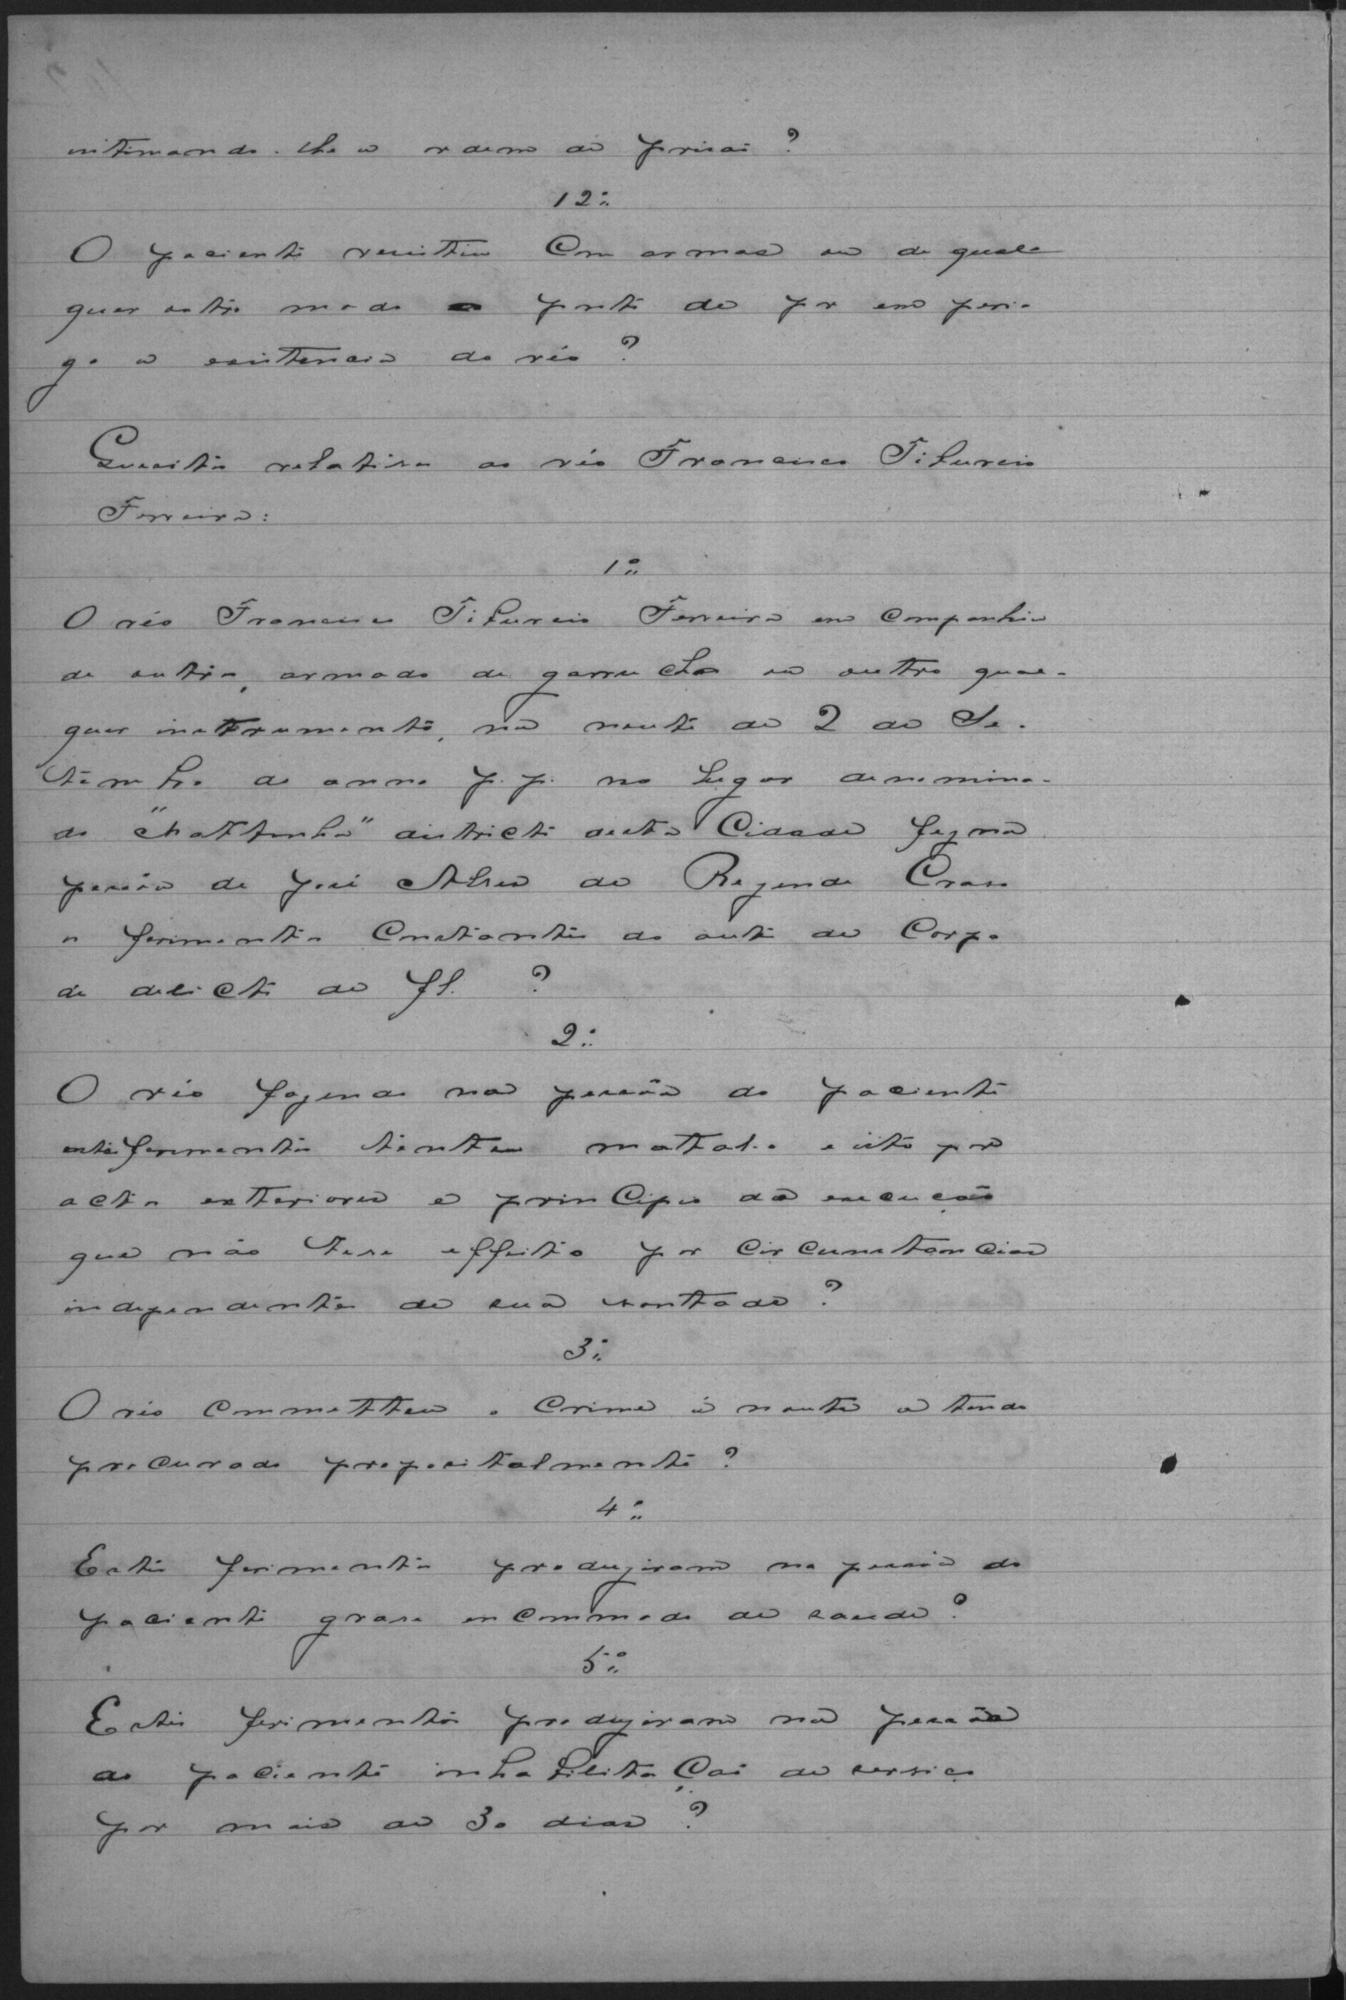 intimando-lhe a ordem de prisão?
12º
O paciente resistiu com armas ou de qual-
quer outro modo a ponto de por em peri-
go a existencia do réo?
Quesitos relativos ao réo Francisco Tiburcio
Ferreira:
1º
O réo Francisco Tiburcio Ferreira em companhia
de outro, armado de garrucha ou outro qual-
quer instrumento, na noute de 2 de Se-
tembro do anno p.p. no lugar denomina-
do "Mattinha" districto desta Cidade fez na
pessôa de José Alves de Rezende
os ferimentos constantes do auto de corpo
de delicto de fl. ?
2º
O réo fazendo na pessôa do paciente
estes ferimentos tentou matal-o e isto por
actos exteriores e principio de execução
que não teve effeito por circumstancias
independentes de sua vontade?
3º
O réo commetteu o crime á noute a tendo
procurado propositalmente?
4º
Estes ferimentos produziram na pessôa do
paciente grave encommodo de saude?
5º
Estes ferimentos produziram na pessôa
do paciente inhabilitação de serviço
por mais de 30 dias?